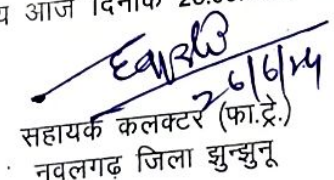 आज दिनांक
26/6/24
सहायक कलक्टर (फा.ट्रे.)
नवलगढ़ जिला झुन्झुनू